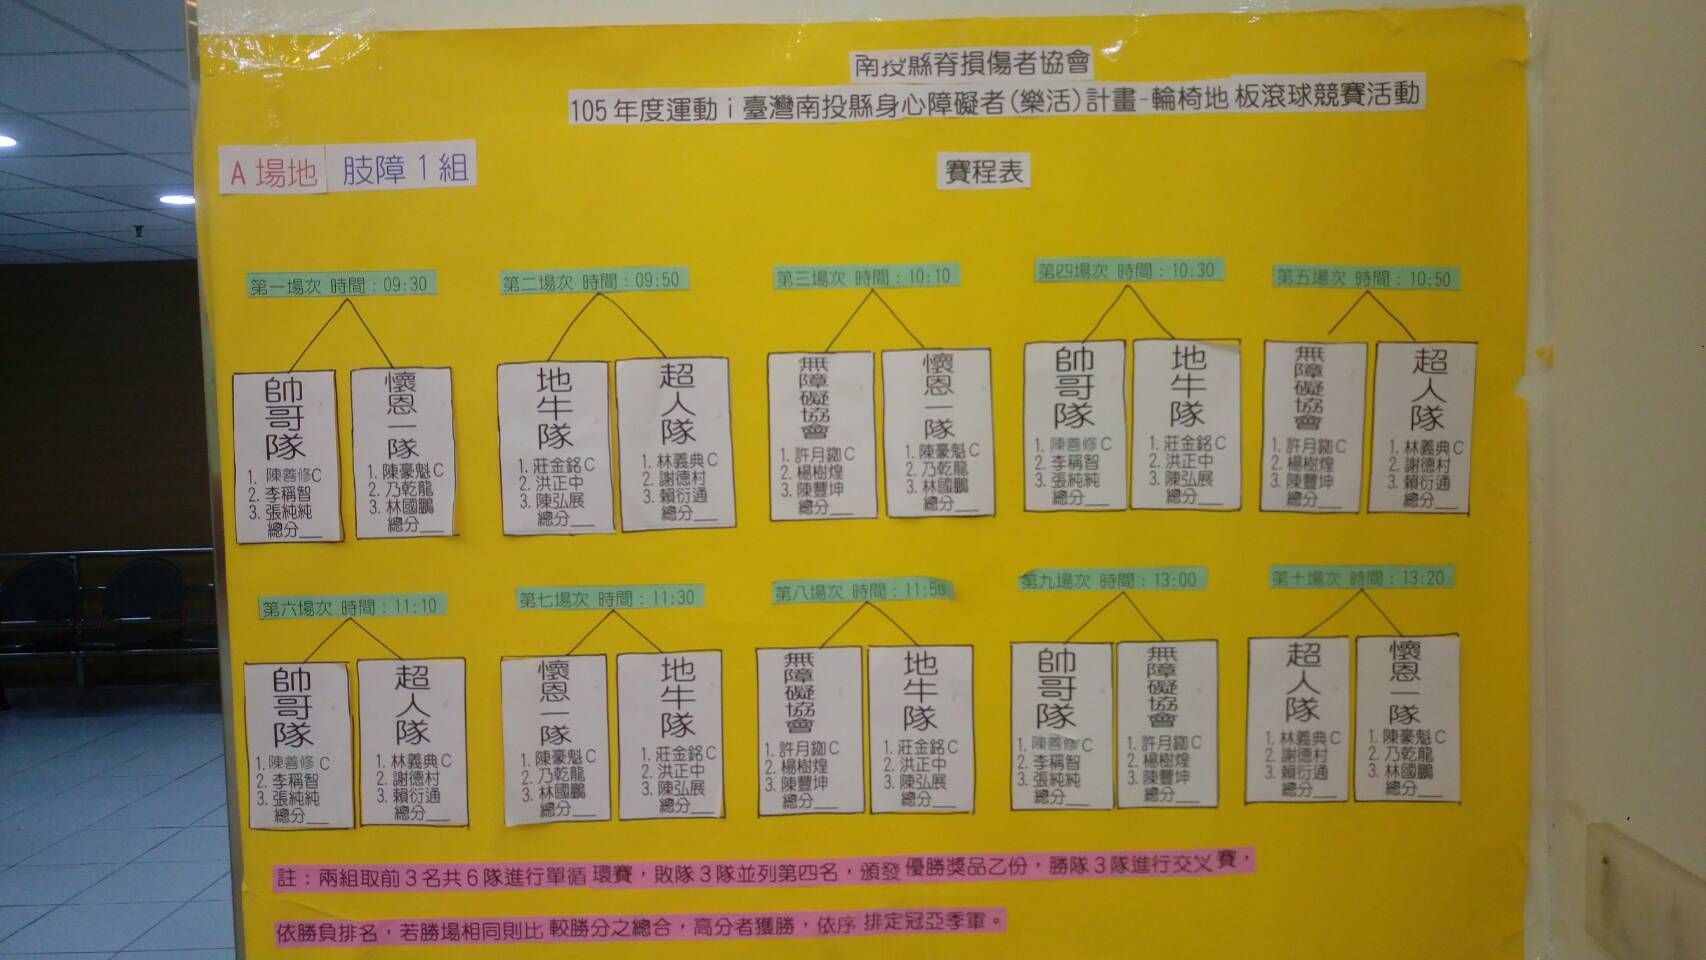 南投縣脊損傷者協會
105年度運動i臺灣南投縣身心障礙者(樂活)計畫-輪椅地板滾球競賽活動
A場地 肢障1組
賽程表
第一場次 時間:09:30
帥哥隊
1. 陳善修C
2. 李稱智
3. 張純純
總分___
懷恩一隊
1. 陳豪魁C
2. 乃乾龍
3. 林國鵬
總分___
第二場次 時間:09:50
地牛隊
1. 莊金銘C
2. 洪正中
3. 陳弘展
總分___
超人隊
1. 林義典C
2. 謝德村
3. 賴衍通
總分___
第三場次 時間:10:10
無障礙協會
1. 許月鎺C
2. 楊樹煌
3. 陳豐坤
總分___
懷恩一隊
1. 陳豪魁C
2. 乃乾龍
3. 林國鵬
總分___
第四場次 時間:10:30
帥哥隊
1. 陳善修C
2. 李稱智
3. 張純純
總分___
地牛隊
1. 莊金銘C
2. 洪正中
3. 陳弘展
總分___
第五場次 時間:10:50
無障礙協會
1. 許月C
2. 楊樹煌
3. 陳豐坤
總分___
超人隊
1. 林義典C
2. 謝德村
3. 賴衍通
總分___
第六場次 時間:11:10
帥哥隊
1. 陳善修C
2. 李稱智
3. 張純純
總分___
超人隊
1. 林義典C
2. 謝德村
3. 賴衍通
總分___
第七場次 時間:11:30
懷恩一隊
1. 陳豪魁C
2. 乃乾龍
3. 林國鵬
總分___
地牛隊
1. 莊金銘C
2. 洪正中
3. 陳弘展
總分___
第八場次 時間:11:50
無障礙協會
1. 許月C
2. 楊樹煌
3. 陳豐坤
總分___
地牛隊
1. 莊金銘C
2. 洪正中
3. 陳弘展
總分___
第九場次 時間:13:00
帥哥隊
1. 陳善修C
2. 李稱智
3. 張純純
總分___
無障礙協會
1. 許月C
2. 楊樹煌
3. 陳豐坤
總分___
第十場次 時間:13:20
超人隊
1. 林義典C
2. 謝德村
3. 賴衍通
總分___
懷恩一隊
1. 陳豪魁C
2. 乃乾龍
3. 林國鵬
總分___
註:兩組取前3名共6隊進行單循環賽,敗隊3隊並列第四名,頒發優勝獎品乙份,勝隊3隊進行交叉賽,
依勝負排名,若勝場相同則比較勝分之總合,高分者獲勝,依序排定冠亞季軍。